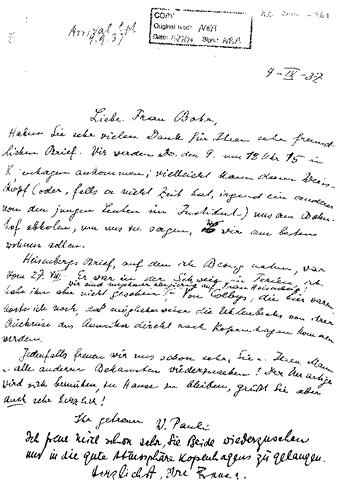 COPY
Arrival Cph
9.9.37
4-IX-37
Liebe Frau Bohr,
Haben Sie sehr vielen Dank für Ihren sehr freund-
lichen Brief. Wir werden Do. den 9. um 18 Uhr 15 in
K'enhagen ankommen; vielleicht kann dann Weiss-
kopf (oder, falls er nicht Zeit hat, irgend ein anderer
von den jungen Leuten im Institut) uns am Bahn-
hof abholen, um uns zu sagen, wo wir am besten
wohnen sollen.
Heisenbergs Brief, auf den ich Bezug nahm, war
vom 27. VIII. Er war in der Schweiz in Ferien, ich
wir sind
auf Frau Heisenberg!
habe ihn aber nicht gesehen. Von Colbys, die hier waren
hörte ich noch, dass möglicherweise die Uhlenbecks von ihrer
Rückreise aus Amerika direkt nach Kopenhagen kommen
werden.
Jedenfalls freuen wir uns schon sehr, Sie, Ihren Mann
alle anderen Bekannten wiederzusehen! Der
wird sich bemühen, zu Hause zu bleiben, grüßt Sie aber
auch sehr herzlich!
Ihr getreuer W. Pauli
Ich freue mich schon sehr, Sie Beide wiederzusehen
und in die gute Atmosphäre Kopenhagens zu gelangen.
Herzlichst, Ihre Franca